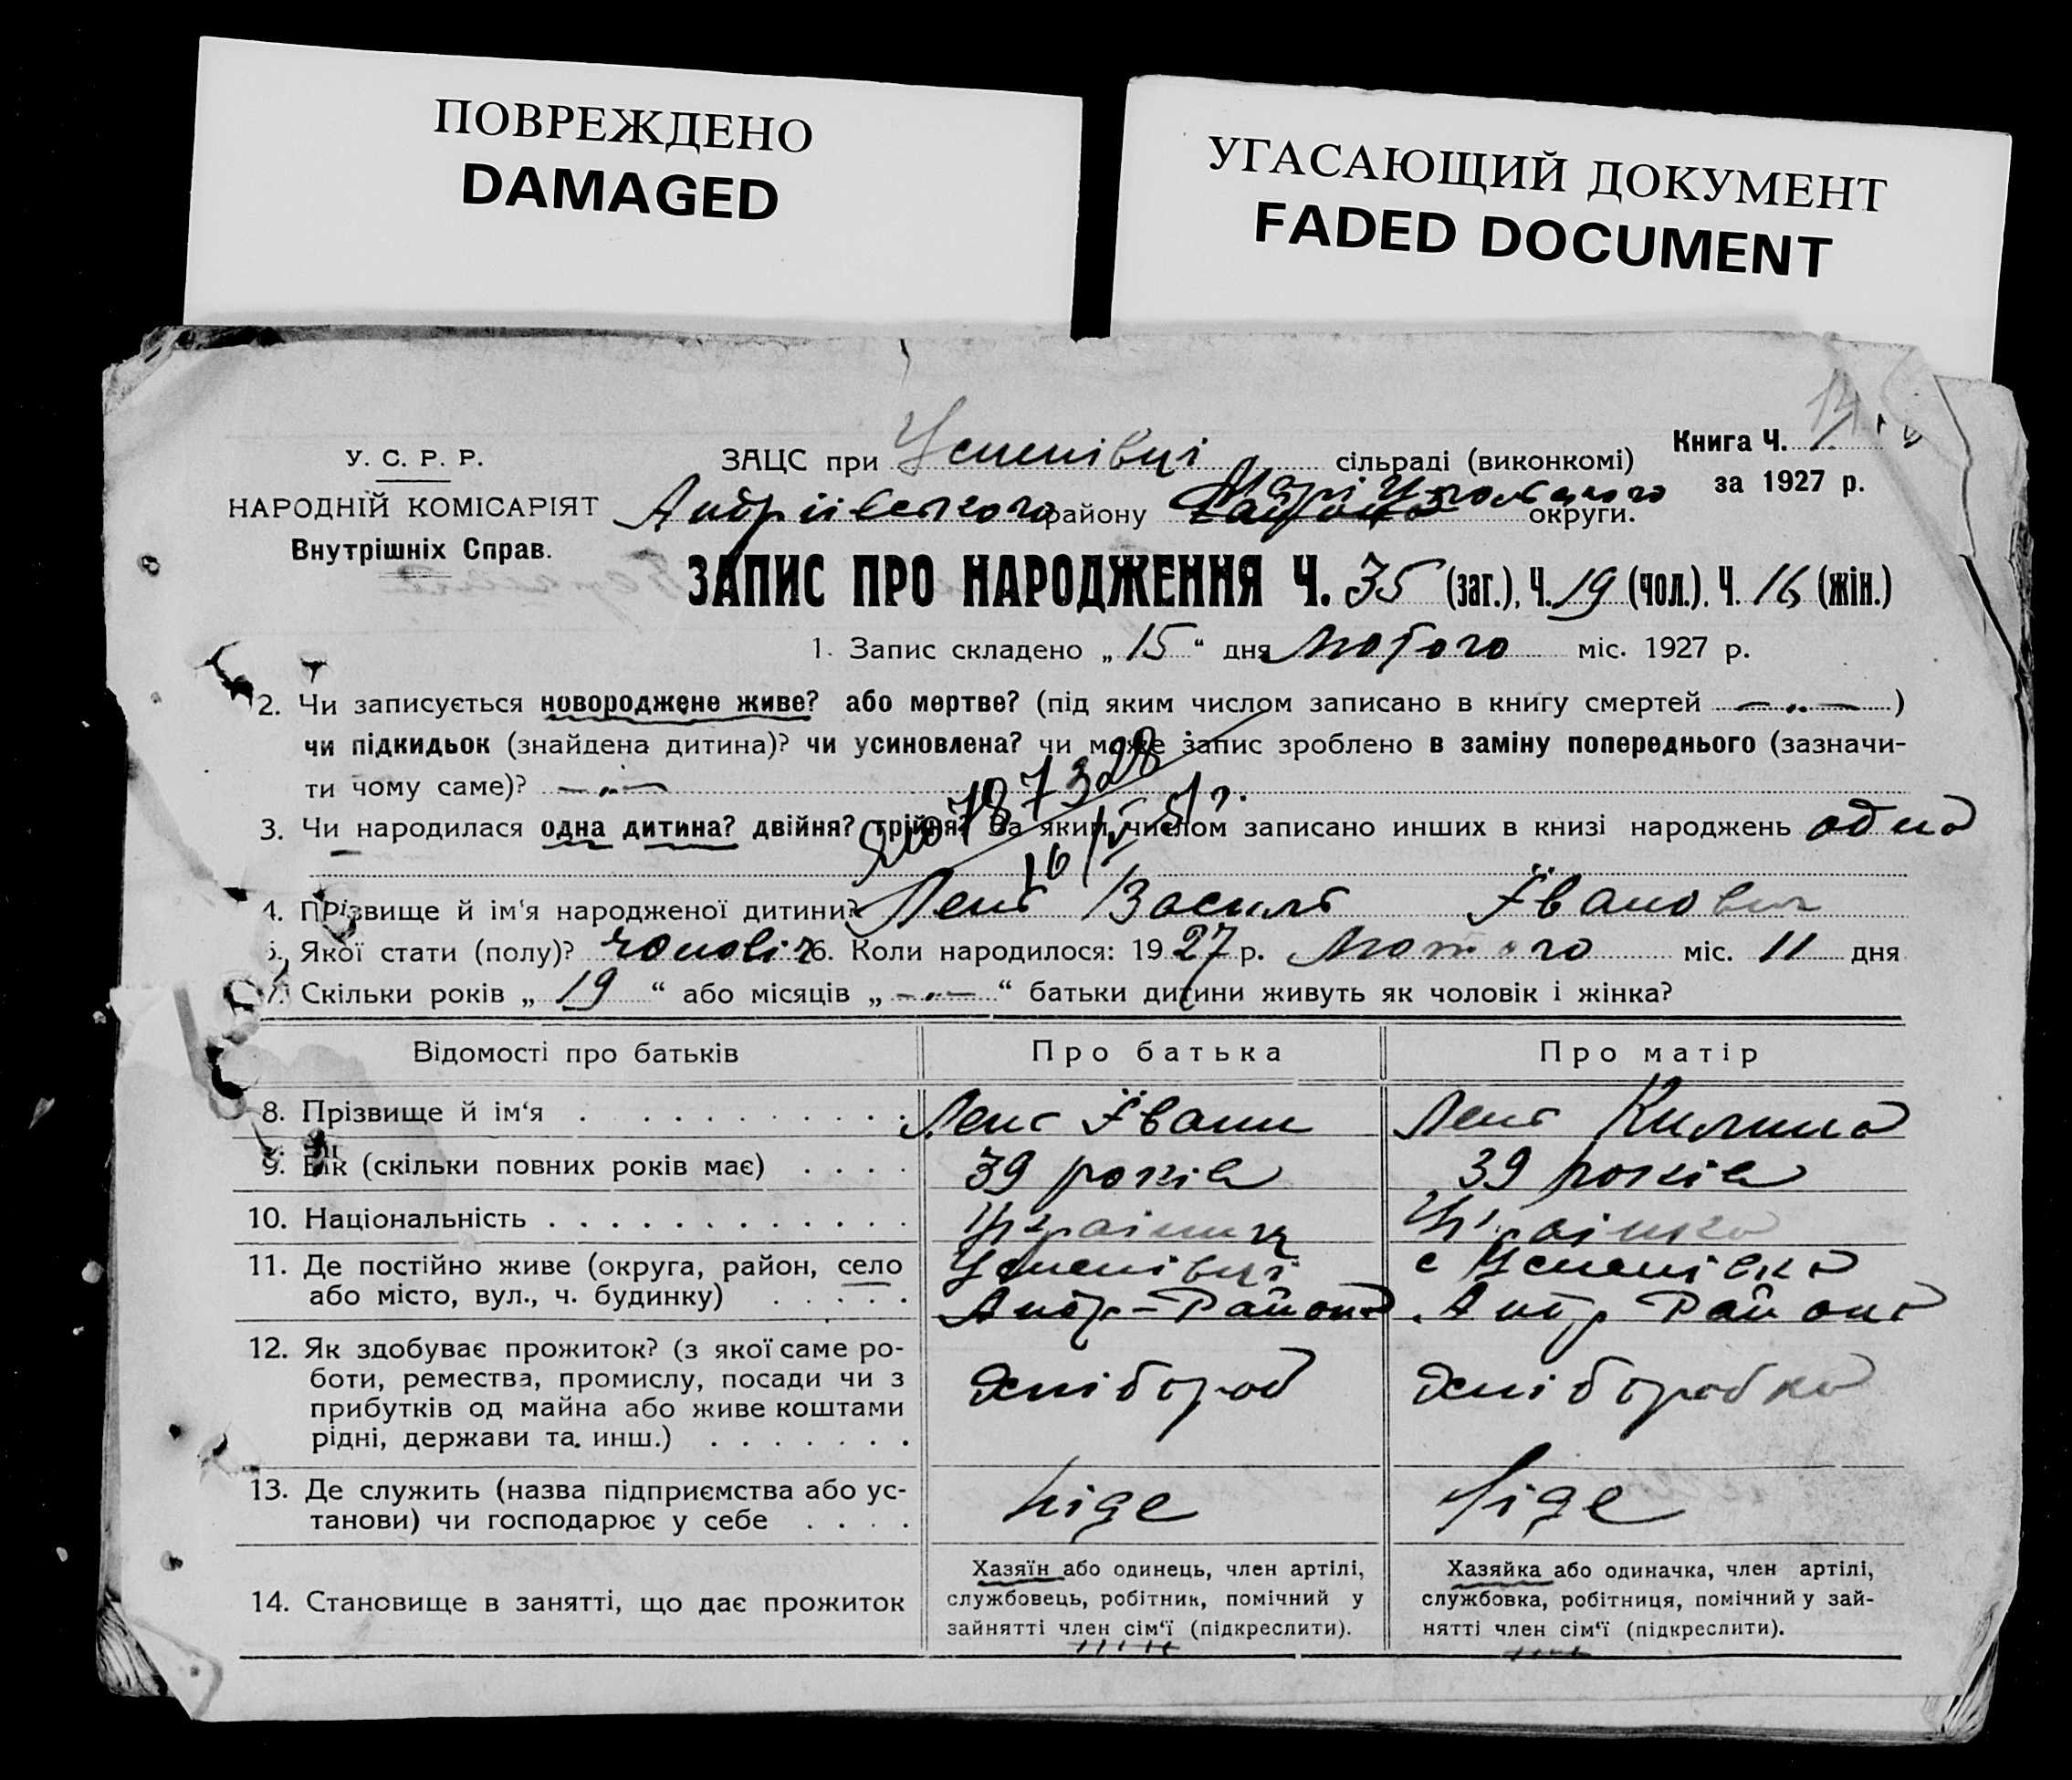 ПОВРЕЖДЕНО
DAMAGED
УГАСАЮЩИЙ ДОКУМЕНТ
FADED DOCUMENT
Книга Ч.
за 1927 р.
У. С. Р. Р.
НАРОДНІЙ КОМІСАРІЯТ
Внутрішніх Справ.
ЗАЦС при Успенівці сільраді (виконкомі)
Андріївського району Маріупольського округи.
ЗАПИС ПРО НАРОДЖЕННЯ Ч. 35 (заг.), Ч. 19 (чол.), Ч. 16 (жін.)
1. Запис складено „ 15 “ дня Лютого міс. 1927 р.
2. Чи записується новороджене живе? або мертве? (під яким числом записано в книгу смертей —„— )
чи підкидьок (знайдена дитина)? чи усиновлена? чи може запис зроблено в заміну попереднього (зазначи-
ти чому саме)? —„—
3. Чи народилася одна дитина? двійня? трійня? За яким числом записано инших в книзі народжень одна
4. Прізвище й ім'я народженої дитини? Лень Василь Іванович
5. Якої стати (полу)? чоловіч 6. Коли народилося: 1927 р. Лютого міс. 11 дня
7. Скільки років „ 19 “ або місяців „ —„— “ батьки дитини живуть як чоловік і жінка?
Відомості про батьків
Про батька
Про матір
8. Прізвище й ім‘я . . . . . . . . . . Лень Іван Лень Килина
9. Вік (скільки повних років має) . . . . 39 років 39 років
10. Національність . . . . . . . . . . . . . Українець Українка
11. Де постійно живе (округа, район, село Успенівці с Успенівка
або місто, вул., ч. будинку) . . . . . Андр-Району Андр Району
12. Як здобуває прожиток? (з якої саме ро-
боти, ремества, промислу, посади чи з хлібороб хліборобка
прибутків од майна або живе коштами
рідні, держави та. инш.) . . . . . . .
13. Де служить (назва підприємства або ус- ніде ніде
танови) чи господарює у себе . . . .
14. Становище в занятті, що дає прожиток
Хазяїн або одинець, член артілі,
службовець, робітник, помічний у
зайнятті член сім‘ї (підкреслити).
Хазяйка або одиначка, член артілі,
службовка, робітниця, помічний у зай-
нятті член сім‘ї (підкреслити).